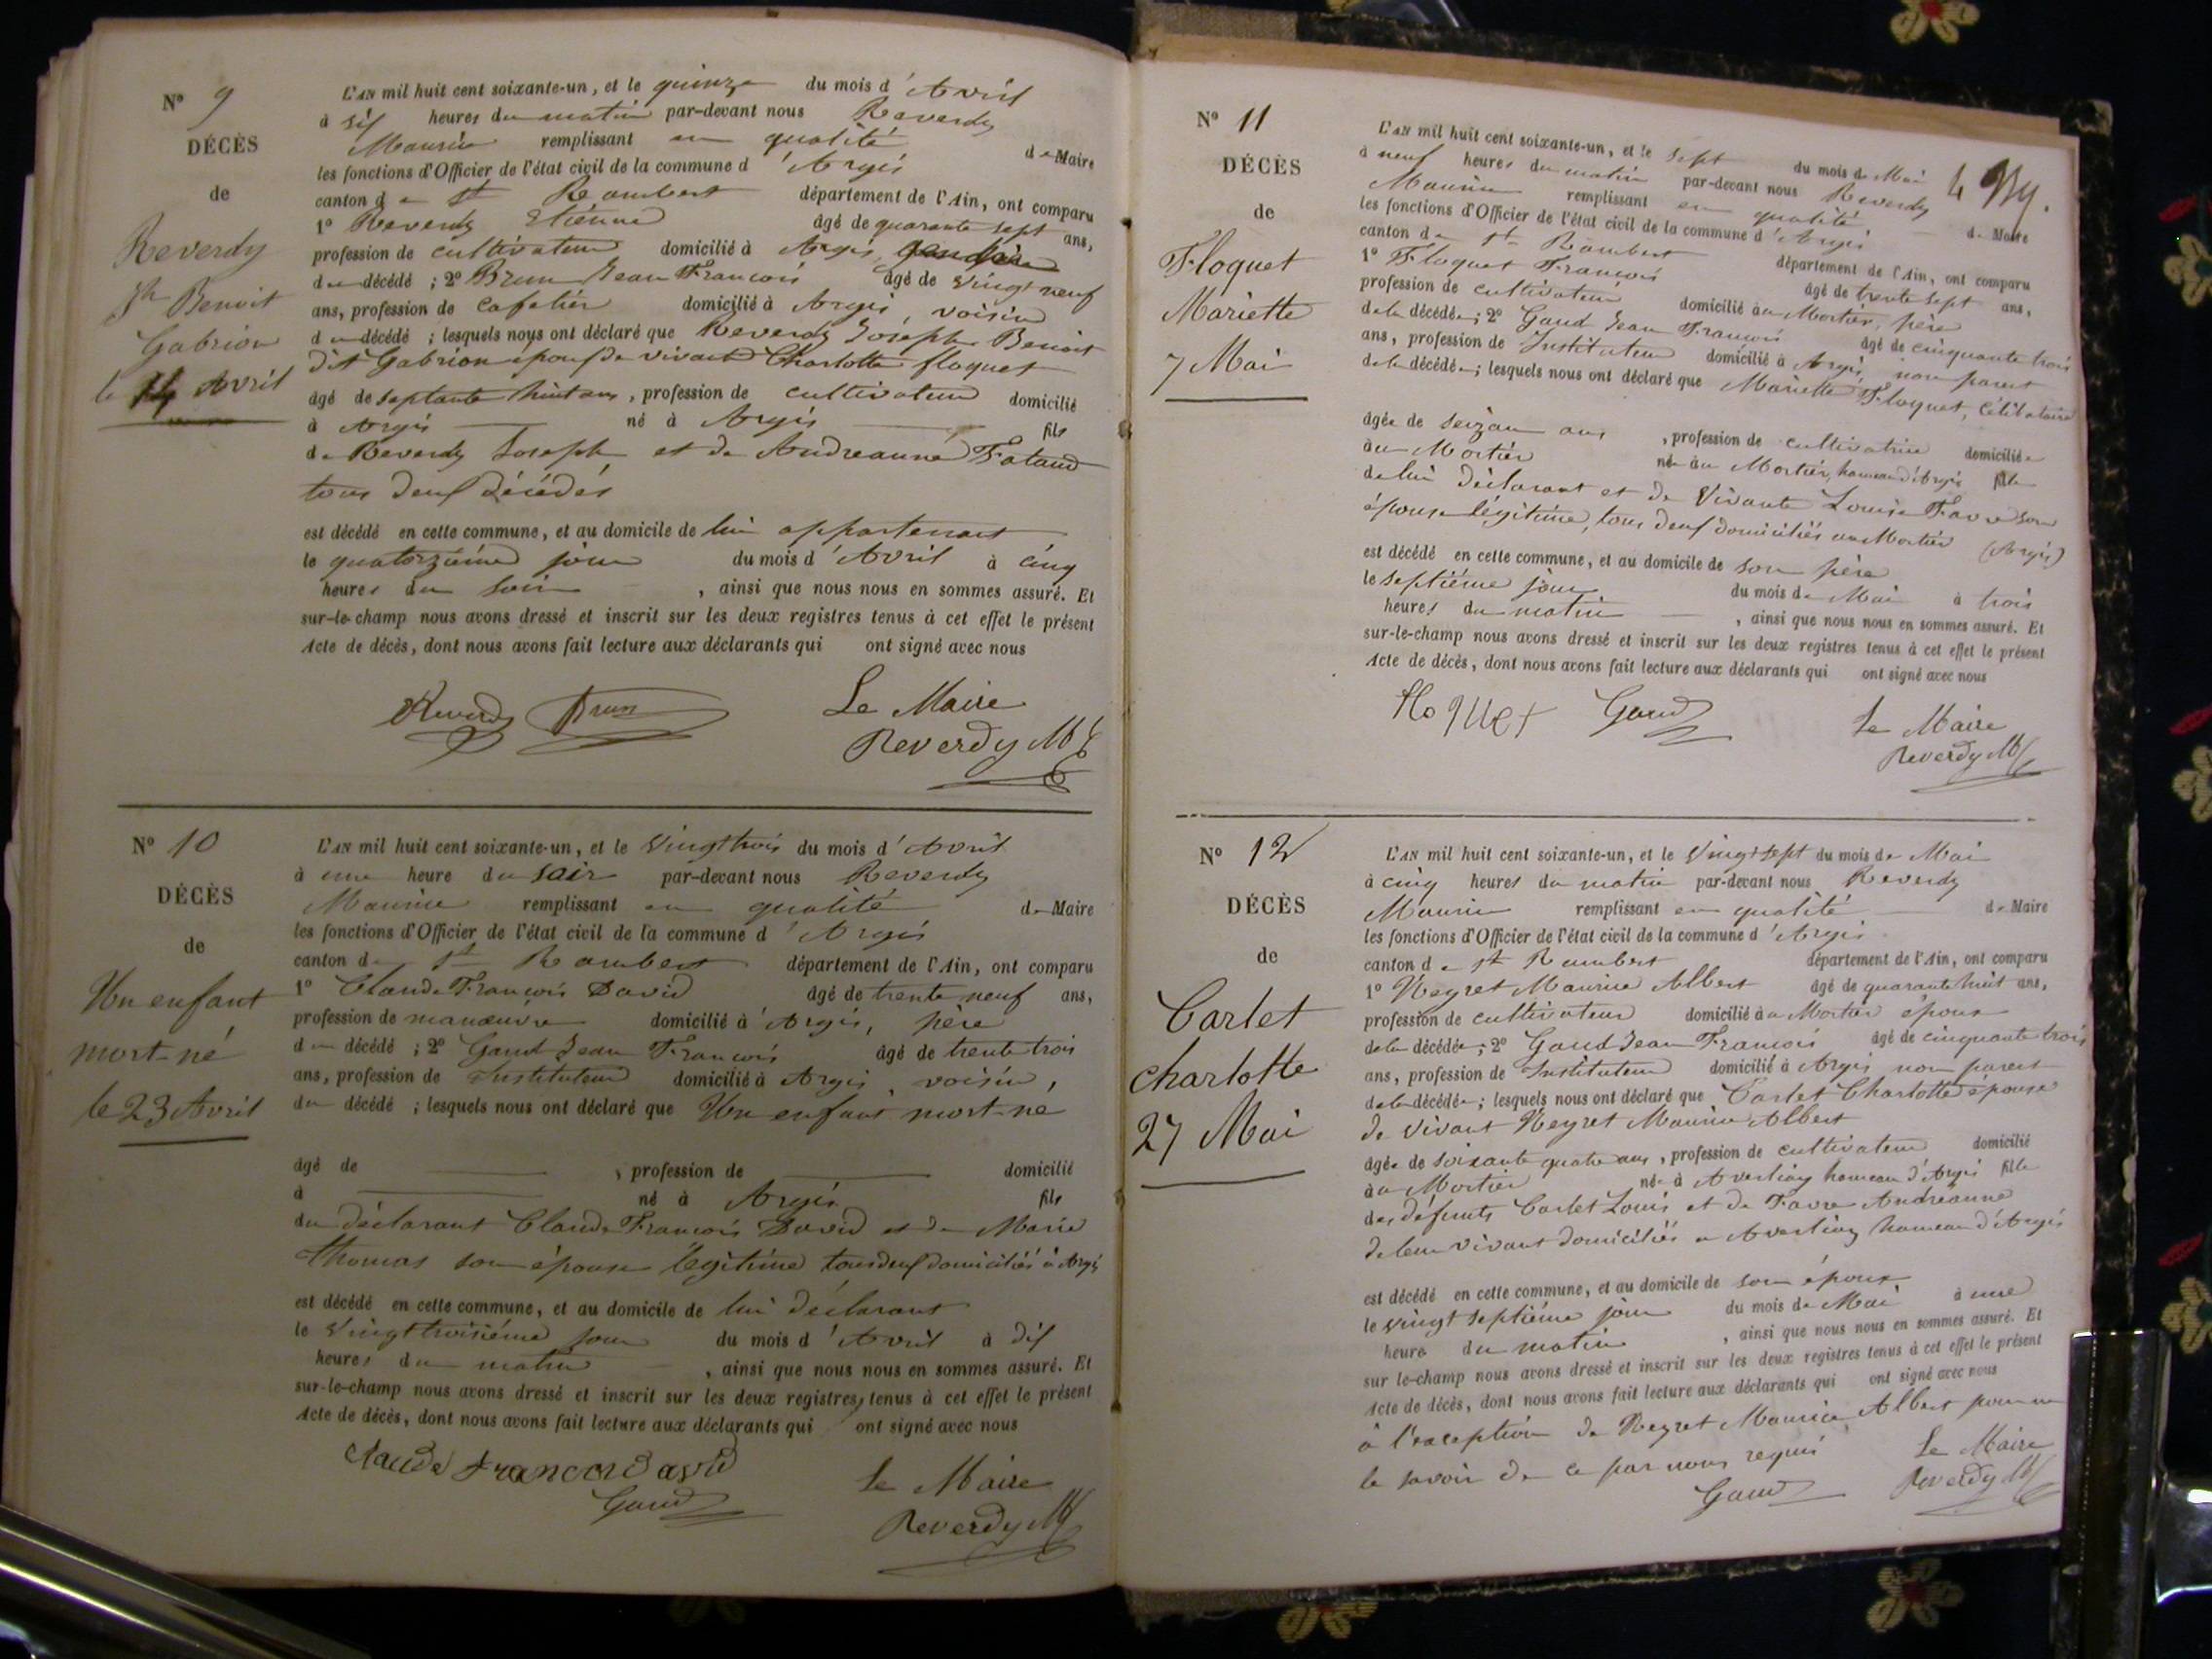 N° 9
DÉCÈS
de
Reverdy
Jh Benoit
Gabrion
le 14 Avril
L'AN mil huit cent soixante-un, et le quinze du mois d'Avril
à dix heures du matin par-devant nous Reverdy
Maurice remplissant en qualité de Maire
les fonctions d'Officier de l'état civil de la commune d'Argis
canton de St Rambert département de l'Ain, ont comparu
1° Reverdy Etienne âgé de quarante sept ans,
profession de cultivateur domicilié à Argis,
du décédé ; 2° Brun Jean François âgé de vingt neuf
ans, profession de cafetier domicilié à Argis, voisin
du décédé ; lesquels nous ont déclaré que Reverdy Joseph Benoit
dit Gabrion époux de vivante Charlotte floquet
âgé de septante huit ans, profession de cultivateur domicilié
à Argis né à Argis fils
de Reverdy Joseph et de Andréanne
tous deux décédés
est décédé en cette commune, et au domicile de lui appartenant
le quatorzième jour du mois d'Avril à cinq
heures du soir, ainsi que nous nous en sommes assuré. Et
sur-le-champ nous avons dressé et inscrit sur les deux registres tenus à cet effet le présent
Acte de décès, dont nous avons fait lecture aux déclarants qui ont signé avec nous
Reverdy Brun Le Maire
Reverdy M
N° 10
DÉCÈS
de
Un enfant
mort-né
le 23 Avril
L'AN mil huit cent soixante-un, et le vingt trois du mois d'Avril
à une heure du soir par-devant nous Reverdy
Maurice remplissant en qualité de Maire
les fonctions d'Officier de l'état civil de la commune d'Argis
canton de St Rambert département de l'Ain, ont comparu
1° Claude François David âgé de trente neuf ans,
profession de manœuvre domicilié à Argis, père
du décédé ; 2° Gaud Jean François âgé de trente trois
ans, profession de Instituteur domicilié à Argis, voisin,
du décédé ; lesquels nous ont déclaré que Un enfant mort-né
âgé de , profession de domicilié
à né à Argis fils
du déclarant Claude François David et de Marie
Thomas son épouse légitime tous deux domiciliés à Argis
est décédé en cette commune, et au domicile de lui déclarant
le vingt troisième jour du mois d'Avril à dix
heures du matin, ainsi que nous nous en sommes assuré. Et
sur-le-champ nous avons dressé et inscrit sur les deux registres tenus à cet effet le présent
Acte de décès, dont nous avons fait lecture aux déclarants qui ont signé avec nous
Claude François David Le Maire
Gaud Reverdy M
N° 11
DÉCÈS
de
Floquet
Mariette
7 Mai
L'AN mil huit cent soixante-un, et le sept du mois de Mai
à neuf heures du matin par-devant nous Reverdy
Maurice remplissant en qualité de Maire
les fonctions d'Officier de l'état civil de la commune d'Argis
canton de St Rambert département de l'Ain, ont comparu
1° Floquet François âgé de trente sept ans,
profession de cultivateur domicilié au Mortier, père
de la décédée ; 2° Gaud Jean François âgé de cinquante trois
ans, profession de Instituteur domicilié à Argis, non parent
de la décédée ; lesquels nous ont déclaré que Mariette Floquet, célibataire
âgée de seize ans, profession de cultivatrice domiciliée
au Mortier née au Mortier, hameau d'Argis fille
de lui déclarant et de vivante Louise Favre son
épouse légitime, tous deux domiciliés au Mortier (Argis)
est décédé en cette commune, et au domicile de son père
le septième jour du mois de Mai à trois
heures du matin, ainsi que nous nous en sommes assuré. Et
sur-le-champ nous avons dressé et inscrit sur les deux registres tenus à cet effet le présent
Acte de décès, dont nous avons fait lecture aux déclarants qui ont signé avec nous
floquet Gaud Le Maire
Reverdy M
N° 12
DÉCÈS
de
Carlet
Charlotte
27 Mai
L'AN mil huit cent soixante-un, et le vingt sept du mois de Mai
à cinq heures du matin par-devant nous Reverdy
Maurice remplissant en qualité de Maire
les fonctions d'Officier de l'état civil de la commune d'Argis
canton de St Rambert département de l'Ain, ont comparu
1° Neyret Maurice Albert âgé de quarante huit ans,
profession de cultivateur domicilié au Mortier époux
de la décédée ; 2° Gaud Jean François âgé de cinquante trois
ans, profession de Instituteur domicilié à Argis non parent
de la décédée ; lesquels nous ont déclaré que Carlet Charlotte épouse
de vivant Neyret Maurice Albert
âgée de soixante quatre ans, profession de cultivateur domicilié
au Mortier née à hameau d'Argis fille
des défunts Carlet Louis et de Favre Andréanne
de leur vivant domiciliés à hameau d'Argis
est décédé en cette commune, et au domicile de son époux
le vingt septième jour du mois de Mai à une
heure du matin, ainsi que nous nous en sommes assuré. Et
sur le-champ nous avons dressé et inscrit sur les deux registres tenus à cet effet le présent
Acte de décès, dont nous avons fait lecture aux déclarants qui ont signé avec nous
à l'exception de Neyret Maurice Albert pour ne
le savoir de ce par nous requis Le Maire
Gaud Reverdy M